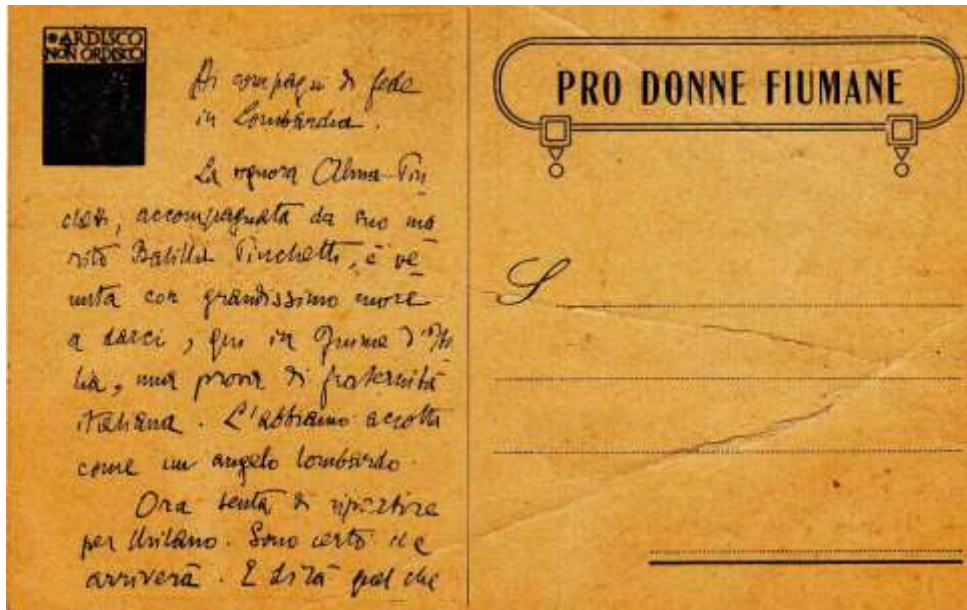 ARDISCO
NON ORDISCO
Ai compagni di fede
in Lombardia.
La signora Alma Fin
chetti, accompagnata da suo ma
rito Balilla Finchetti, è ve
nuta con grandissimo cuore
a darci, qui in Fiume d'Ita
lia, una prova di fraternità
italiana. L'abbiamo accolta
come un angelo lombardo.
Ora tenta di ripartire
per Milano. Sono certo che
arriverà. E dirà quel che
PRO DONNE FIUMANE